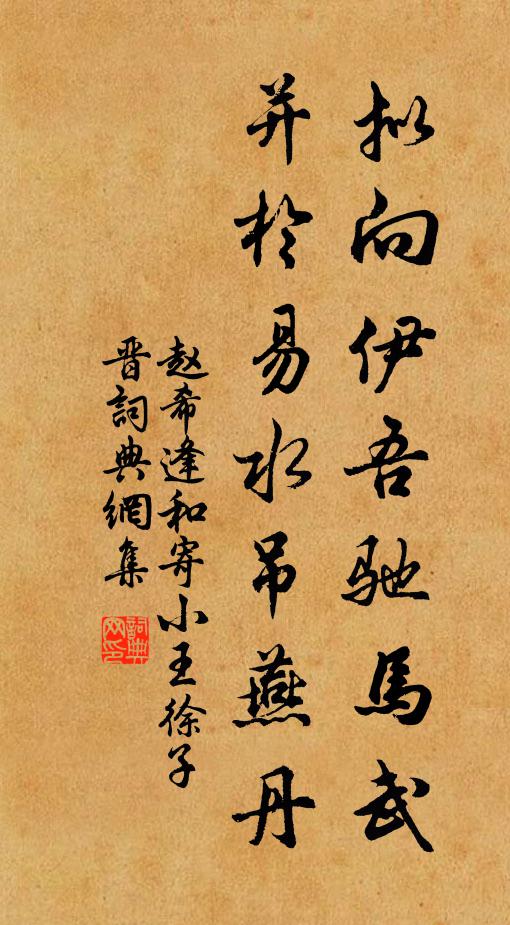 拟向伊吾驰马武
并於易水吊燕丹
赵希逢和寄小王徐子
晋詞典網集
詞典网印